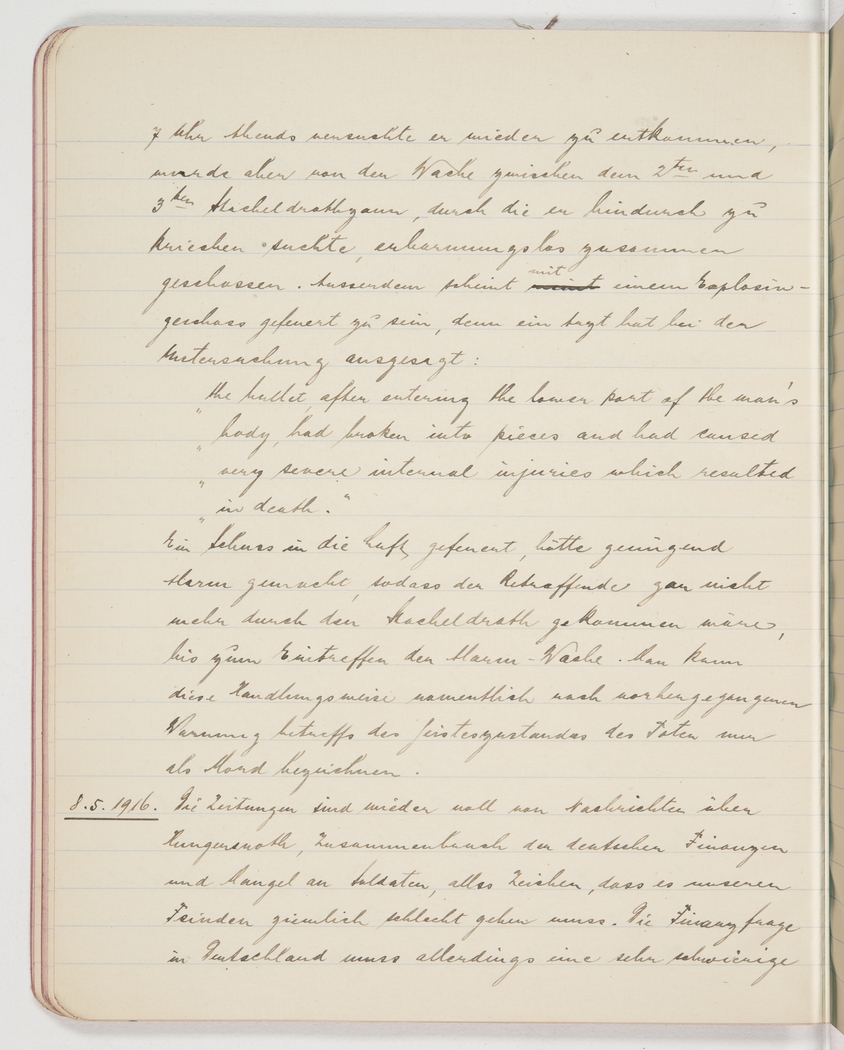 7 Uhr Abends versuchte er wieder zu entkommen,
wurde aber von der Wache zwischen dem 2ten und
3ten Stacheldrathzaun, durch die er hindurch zu
kriechen suchte, erbarmungslos zusammen
geschossen. Ausserdem scheint mit einem Explosiv-
geschoss gefeuert zu sein, denn ein Arzt hat bei der
Untersuchung ausgesagt:
the bullet, after entering the lower part of the man's
" body, had broken into pieces and had caused
" very severe internal injuries which resulted
" in death."
Ein Schuss in die Luft, gefeuert, hätte genügend
Alarm gemacht, sodass der Betreffende gar nicht
mehr durch den Stacheldrath gekommen wäre,
bis zum Eintreffen der Alarm-Wache. Man kann
diese Handlungsweise namentlich nach vorhergegangenen
Warnung betreffs des Geisteszustandes des Toten nur
als Mord bezeichnen.
8.5.1916. Die Zeitungen sind wieder voll von Nachrichten über
Hungersnoth, Zusammenbruch der deutschen Finanzen
und Mangel an Soldaten, alles Zeichen, dass es unseren
Feinden ziemlich schlecht gehen muss. Die Finanzfrage
in Deutschland muss allerdings eine sehr schwierige